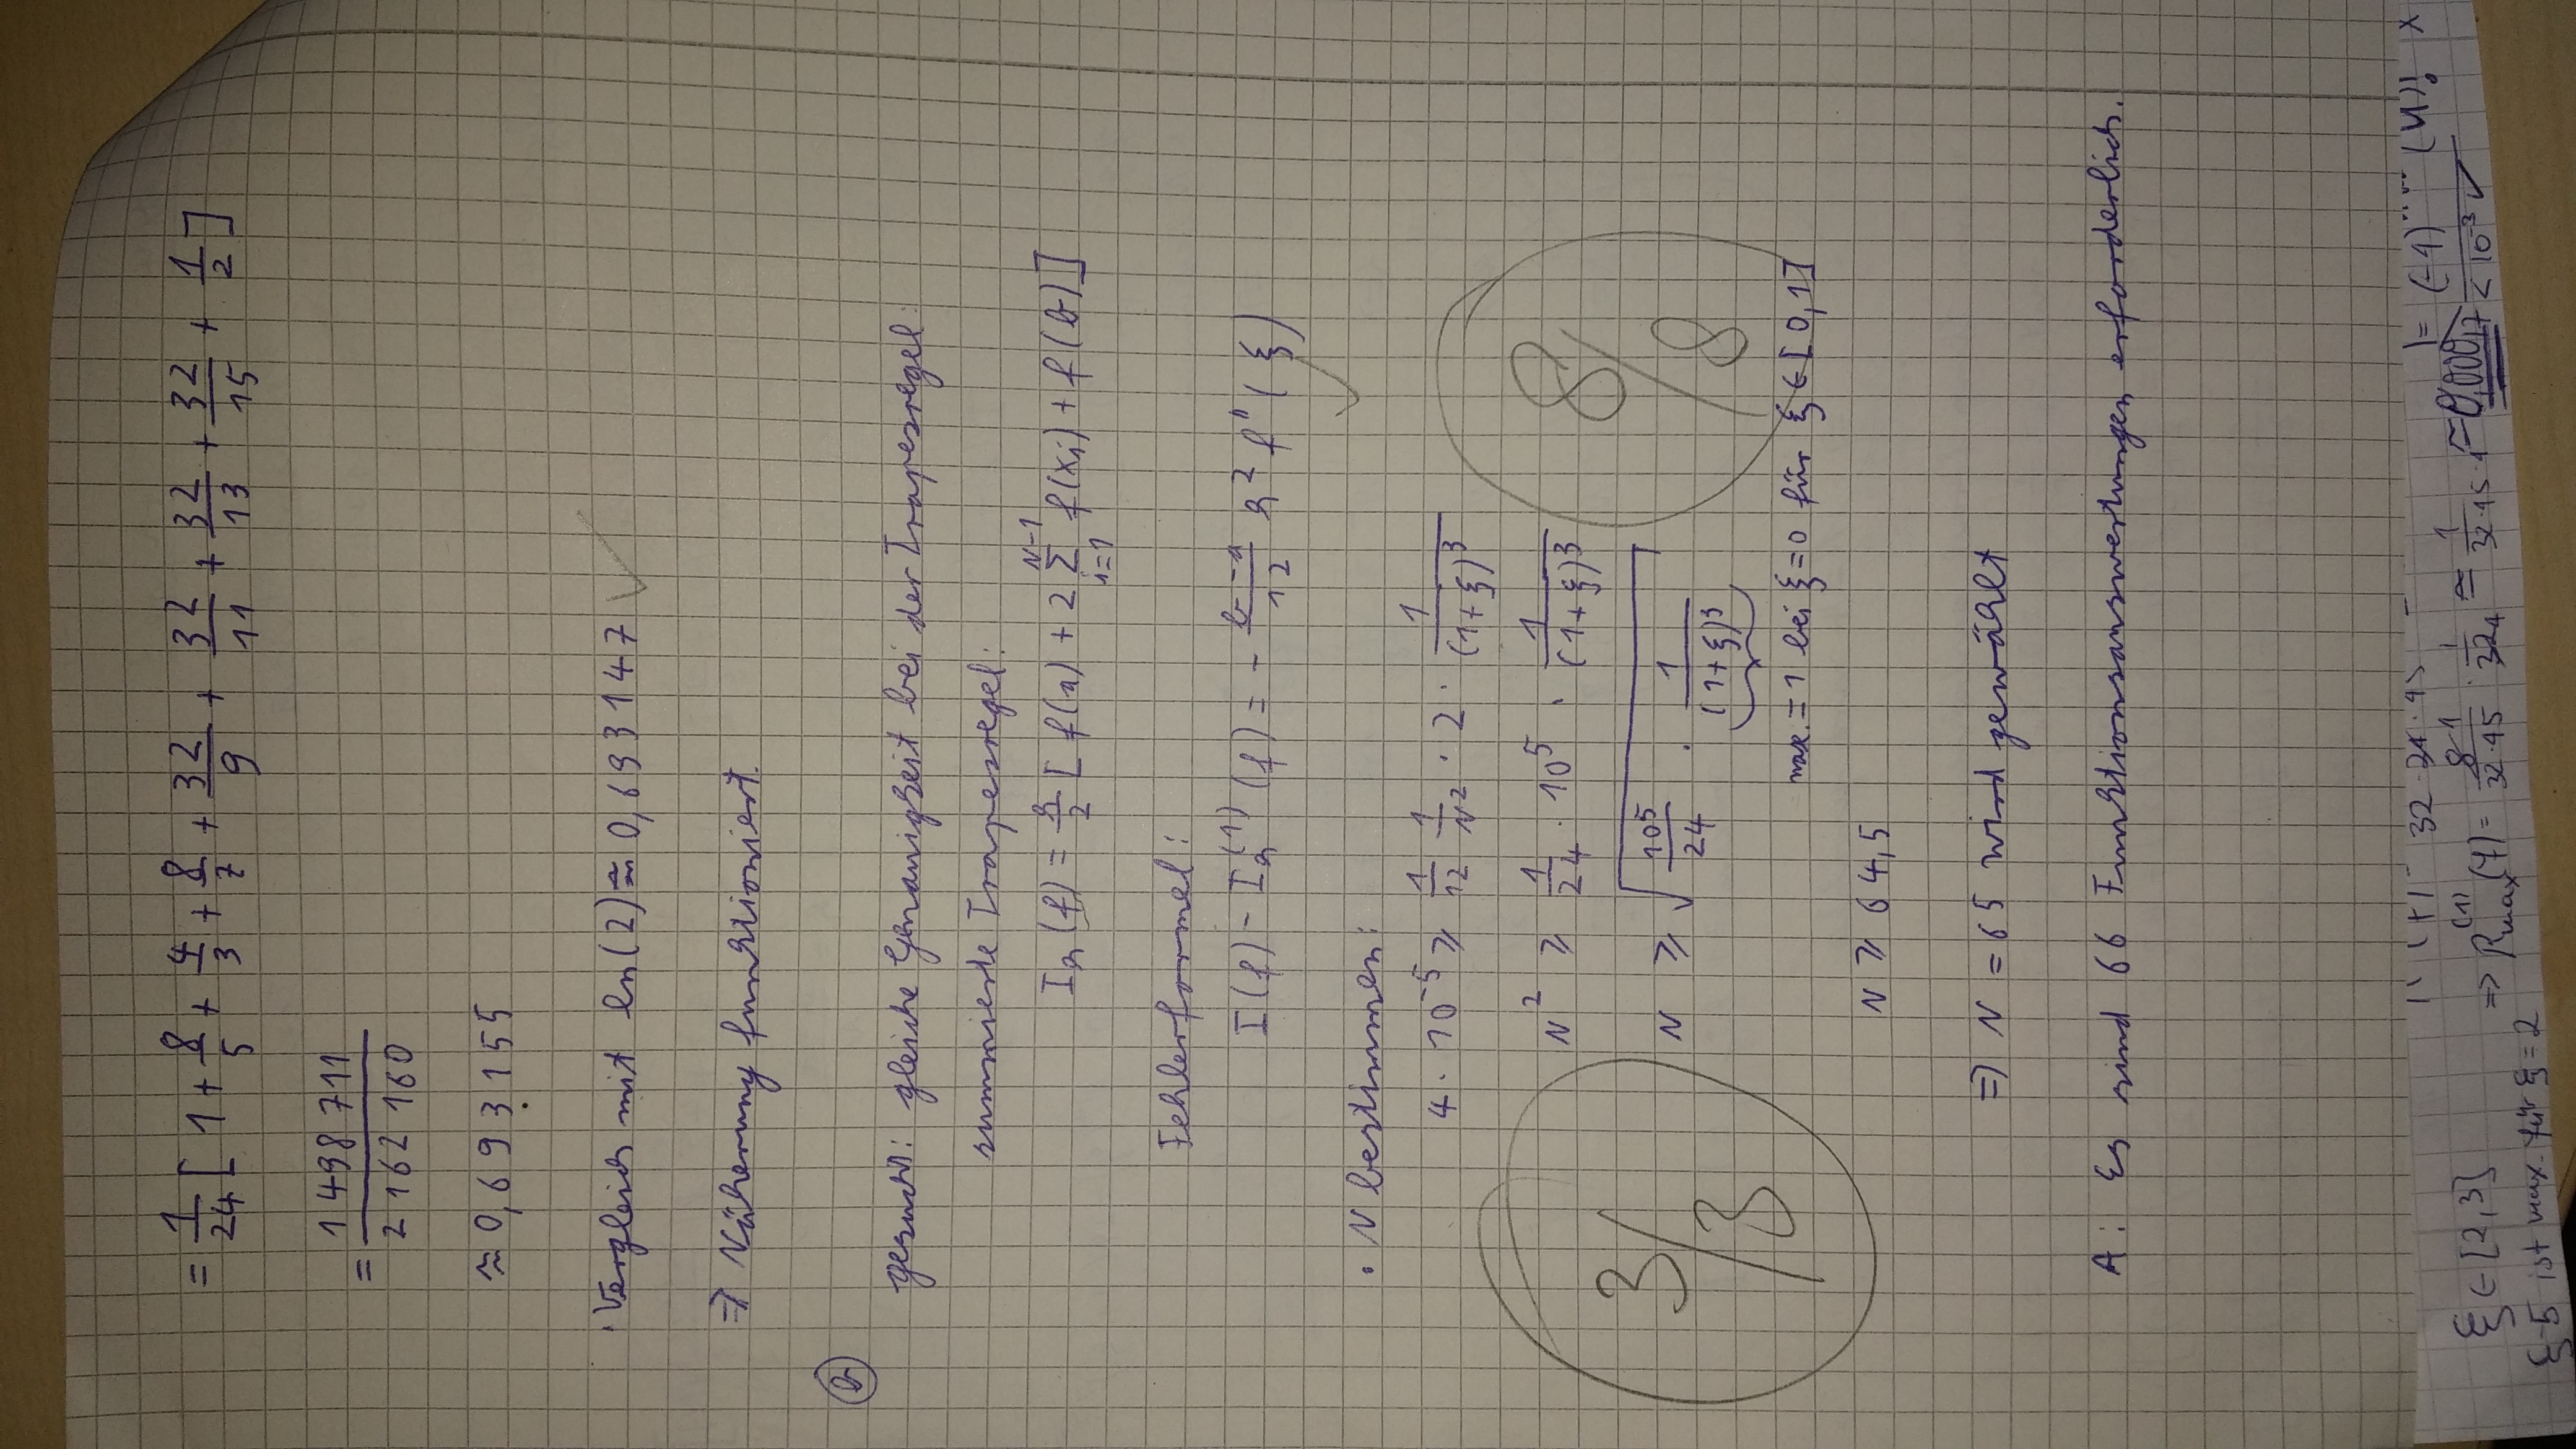 = 1/24 [ 1 + 8/5 + 4/3 + 8/7 + 32/9 + 32/11 + 32/13 + 32/15 + 1/2 ]
= 1 498 711 / 2 162 160
≈ 0,693155
· Vergleich mit ln(2) ≈ 0,693147 ✓
⇒ Näherung funktioniert.
b
gesucht: gleiche Genauigkeit bei der Trapezregel:
summierte Trapezregel:
I_h(f) = h/2 [ f(a) + 2 Σ_{i=1}^{N-1} f(x_i) + f(b) ]
Fehlerformel:
I(f) - I_h^{(1)}(f) = - (b-a)/12 h² f''(ξ) ✓
· N bestimmen:
4 · 10^{-5} ≥ 1/12 1/N² · 2 · 1/(1+ξ)³
N² ≥ 1/24 · 10^5 · 1/(1+ξ)³
N ≥ √( 10^5/24 · 1/(1+ξ)³ )
3/3
8/8
max. = 1 bei ξ=0 für ξ ∈ [0,1]
N ≥ 64,5
⇒ N = 65 wird gewählt
A: Es sind 66 Funktionsauswertungen erforderlich.
ξ ∈ [2,3]
⇒ R_max^{(1)}
≈ 0,00017 < 10^{-3} ✓
ist max. für ξ = 2